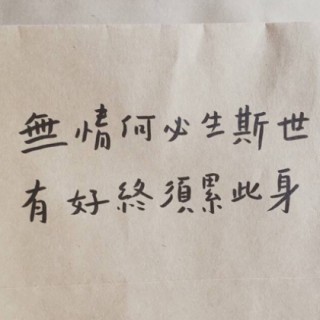 無情何必生斯世
有好終須累此身